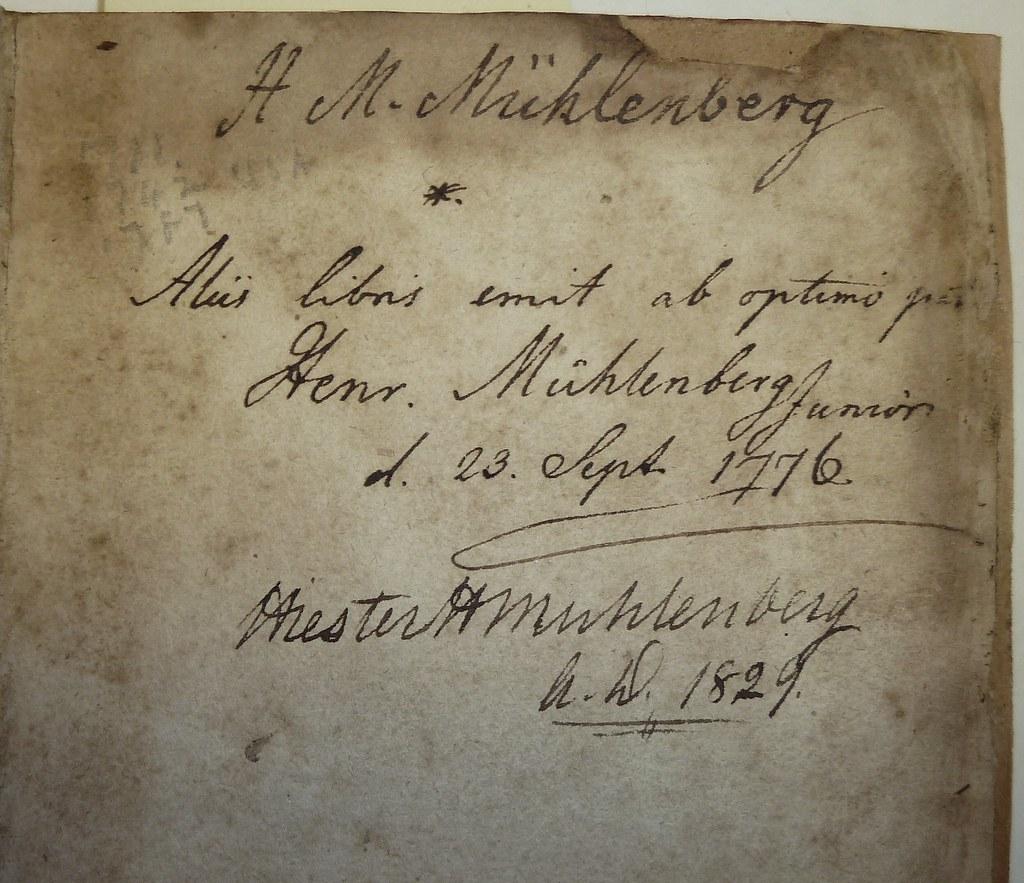 H M. Mühlenberg
*.
Aliis libris emit ab optimo
Henr. Mühlenberg Junior
d. 23. Sept 1776
Hiester H Muhlenberg
A. D. 1829.